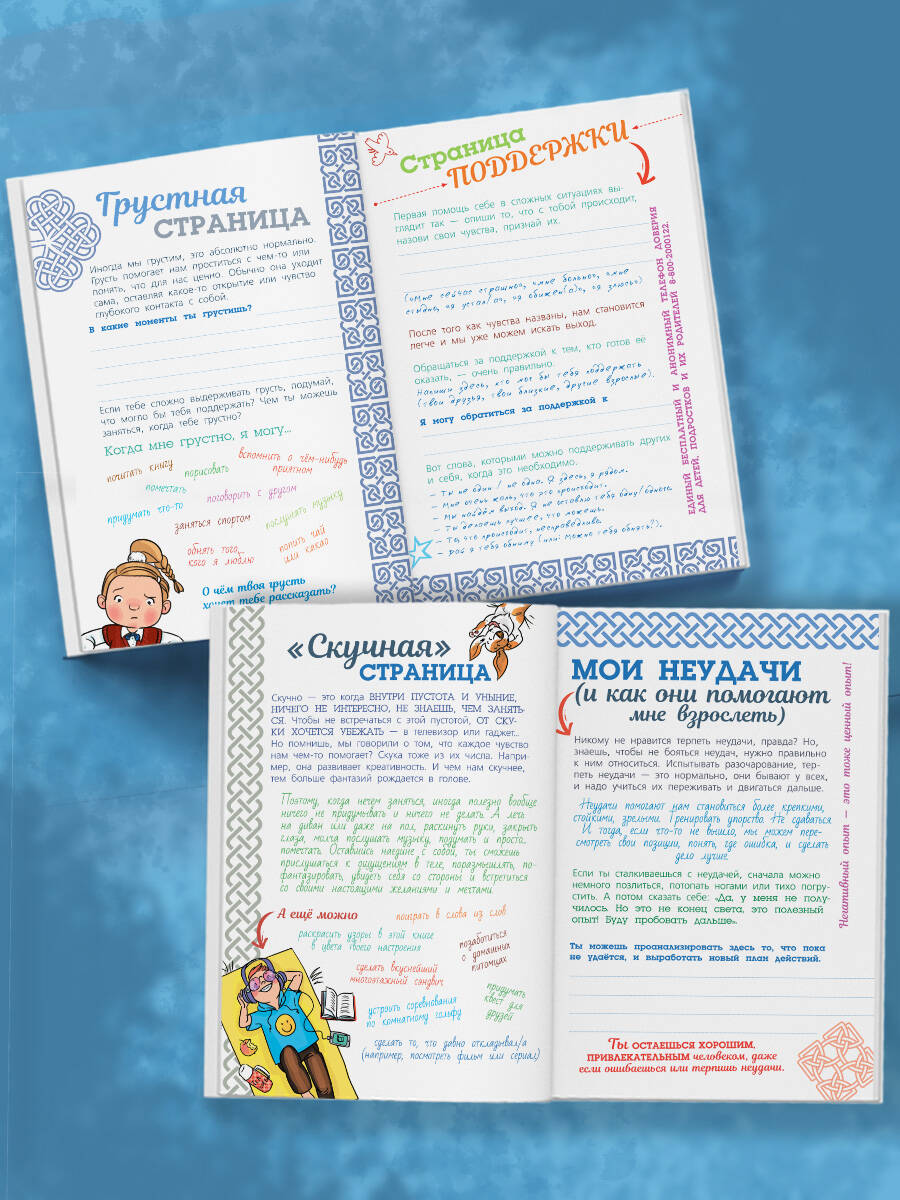 Грустная
СТРАНИЦА
Иногда мы грустим, это абсолютно нормально.
Грусть помогает нам проститься с чем-то или
понять, что для нас ценно. Обычно она уходит
сама, оставляя какое-то открытие или чувство
глубокого контакта с собой.
В какие моменты ты грустишь?
Если тебе сложно выдерживать грусть, подумай,
что могло бы тебя поддержать? Чем ты можешь
заняться, когда тебе грустно?
Когда мне грустно, я могу...
почитать книгу
порисовать
вспомнить о чём-нибудь
приятном
помечтать
поговорить с другом
придумать что-то
заняться спортом
послушать музыку
обнять того,
кого я люблю
попить чай
или какао
О чём твоя грусть
хочет тебе рассказать?
Страница
ПОДДЕРЖКИ
Первая помощь себе в сложных ситуациях вы-
глядит так — опиши то, что с тобой происходит,
назови свои чувства, признай их.
(«мне сейчас страшно», «мне больно», «мне
стыдно», «я устал(а)», «я обижен(а)», «я злюсь»)
После того как чувства названы, нам становится
легче и мы уже можем искать выход.
Обращаться за поддержкой к тем, кто готов её
оказать, — очень правильно.
Напиши здесь, кто мог бы тебя поддержать
(твои друзья, твои близкие, другие взрослые).
Я могу обратиться за поддержкой к
Вот слова, которыми можно поддерживать других
и себя, когда это необходимо.
– Ты не один / не одна. Я здесь, я рядом.
– Мне очень жаль, что это происходит.
– Мы найдём выход. Я не оставлю тебя одну/одного.
– Ты делаешь лучшее, что можешь.
– То, что происходит, несправедливо.
– Дай я тебя обниму (или: можно тебя обнять?).
ЕДИНЫЙ БЕСПЛАТНЫЙ И АНОНИМНЫЙ ТЕЛЕФОН ДОВЕРИЯ
ДЛЯ ДЕТЕЙ, ПОДРОСТКОВ И ИХ РОДИТЕЛЕЙ 8-800-2000122.
«Скучная»
СТРАНИЦА
Скучно — это когда ВНУТРИ ПУСТОТА И УНЫНИЕ,
НИЧЕГО НЕ ИНТЕРЕСНО, НЕ ЗНАЕШЬ, ЧЕМ ЗАНЯТЬ
СЯ. Чтобы не встречаться с этой пустотой, ОТ СКУ-
КИ ХОЧЕТСЯ УБЕЖАТЬ — в телевизор или гаджет...
Но помнишь, мы говорили о том, что каждое чувство
нам чем-то помогает? Скука тоже из их числа. Напри-
мер, она развивает креативность. И чем нам скучнее,
тем больше фантазий рождается в голове.
Поэтому, когда нечем заняться, иногда полезно вообще
ничего не придумывать и ничего не делать. А лечь
на диван или даже на пол, раскинуть руки, закрыть
глаза, молча послушать музыку, подумать и просто...
помечтать. Оставшись наедине с собой, ты сможешь
прислушаться к ощущениям в теле, поразмышлять, по-
фантазировать, увидеть себя со стороны и встретиться
со своими настоящими желаниями и мечтами.
А ещё можно
поиграть в слова из слов
раскрасить узоры в этой книге
в цвета твоего настроения
позаботиться
о домашних
питомцах
сделать вкуснейший
многоэтажный сэндвич
придумать
квест для
друзей
устроить соревнования
по комнатному гольфу
сделать то, что давно откладывал/а
(например, посмотреть фильм или сериал)
МОИ НЕУДАЧИ
(и как они помогают
мне взрослеть)
Никому не нравится терпеть неудачи, правда? Но,
знаешь, чтобы не бояться неудач, нужно правильно
к ним относиться. Испытывать разочарование, тер-
петь неудачи — это нормально, они бывают у всех,
и надо учиться их переживать и двигаться дальше.
Неудачи помогают нам становиться более крепкими,
стойкими, зрелыми. Тренировать упорство. Не сдаваться.
И тогда, если что-то не вышло, мы можем пере-
смотреть свои позиции, понять, где ошибка, и сделать
дело лучше.
Если ты сталкиваешься с неудачей, сначала можно
немного позлиться, потопать ногами или тихо погру-
стить. А потом сказать себе: «Да, у меня не полу-
чилось. Но это не конец света, это полезный
опыт! Буду пробовать дальше».
Ты можешь проанализировать здесь то, что пока
не удаётся, и выработать новый план действий.
Ты ОСТАЕШЬСЯ ХОРОШИМ,
ПРИВЛЕКАТЕЛЬНЫМ человеком, даже
если ошибаешься или терпишь неудачи.
Негативный опыт — это тоже ценный опыт!